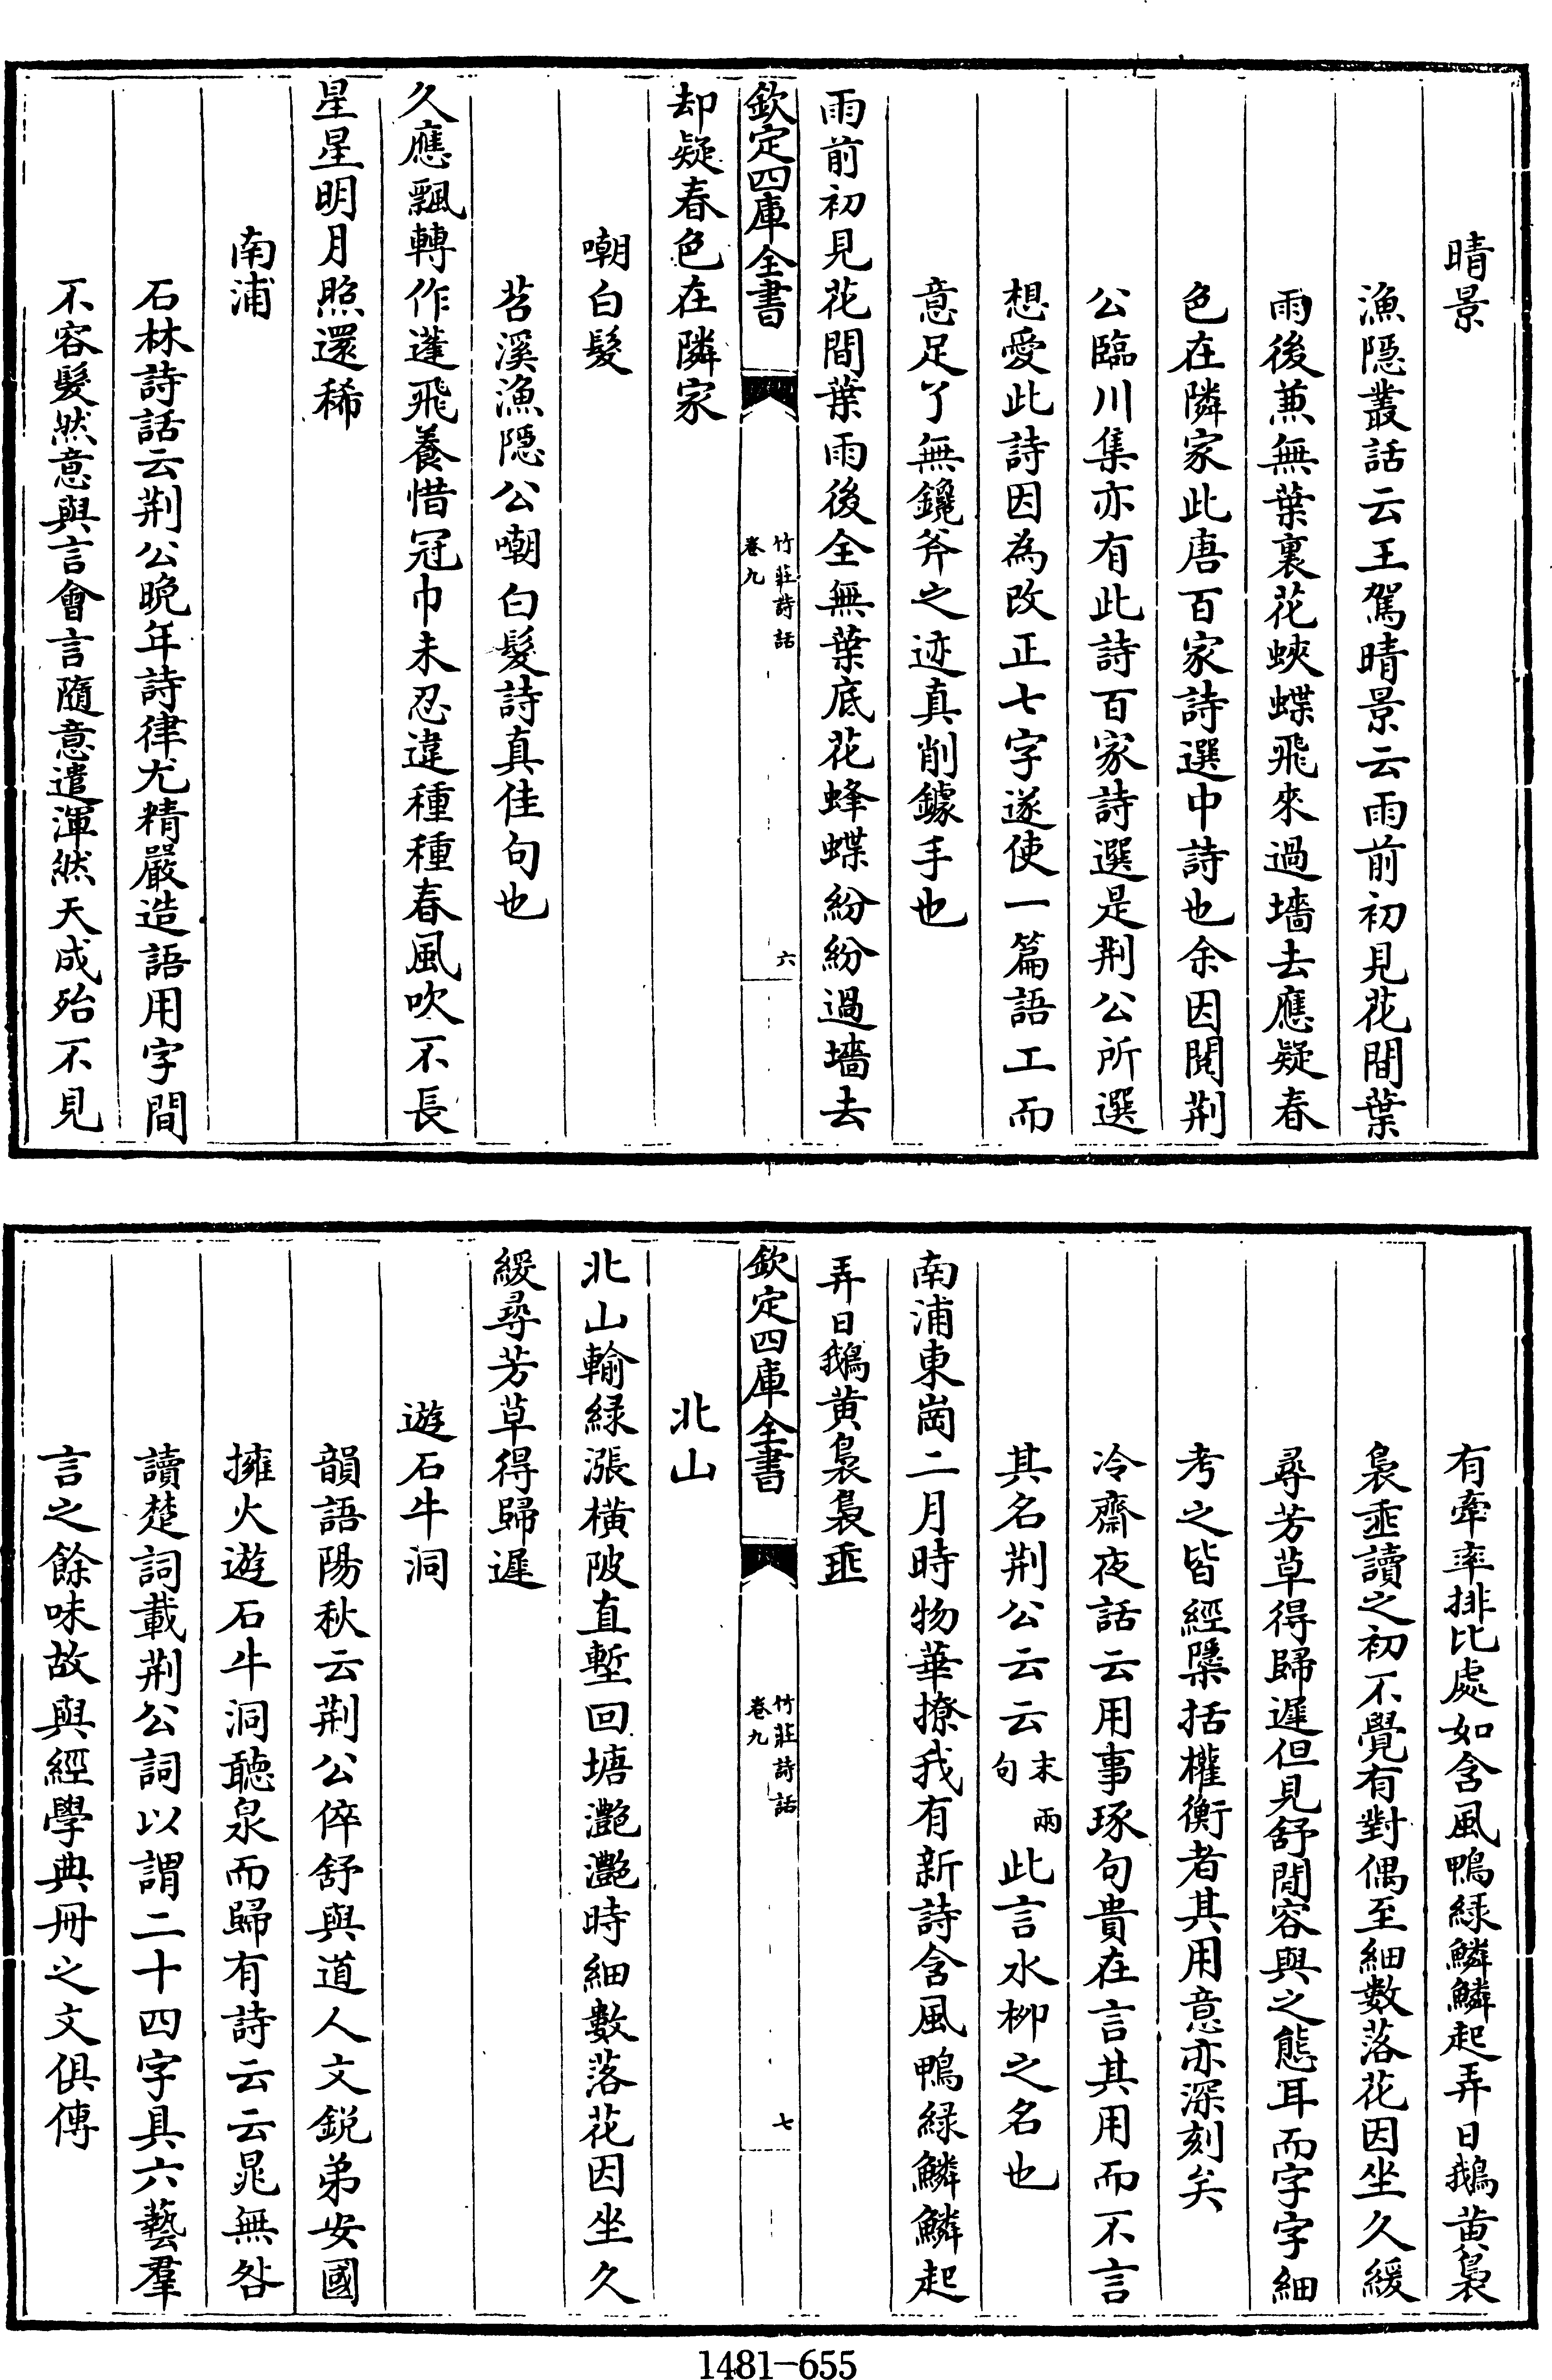 晴景
漁隠叢話云王駕晴景云雨前初見花間葉
雨後兼無葉裏花蛺蝶飛來過墻去應疑春
色在隣家此唐百家詩選中詩也余因閱荆
公臨川集亦有此詩百家詩選是荆公所選
想愛此詩因為改正七字遂使一篇語工而
意足了無鑱斧之迹真削鐻手也
雨前初見花間葉雨後全無葉底花蜂蝶紛紛過墻去
欽定四庫全書
竹莊詩話
卷九
六
却疑春色在隣家
嘲白髮
苕溪漁隠公嘲白髮詩真佳句也
久應飄轉作蓬飛養惜冠巾未忍違種種春風吹不長
星星明月照還稀
南浦
石林詩話云荆公晚年詩律尤精嚴造語用字間
不容髮然意與言會言隨意遣渾然天成殆不見
有牽率排比處如含風鴨緑鱗鱗起弄日鵝黄裊
裊垂讀之初不覺有對偶至細數落花因坐久緩
尋芳草得歸遲但見舒閒容與之態耳而字字細
考之皆經櫽括權衡者其用意亦深刻矣
冷齋夜話云用事琢句貴在言其用而不言
其名荆公云云末兩句此言水柳之名也
南浦東崗二月時物華撩我有新詩含風鴨緑鱗鱗起
弄日鵝黄裊裊垂
欽定四庫全書
竹莊詩話
卷九
七
北山
北山輸緑漲橫陂直塹回塘灧灧時細數落花因坐久
緩尋芳草得歸遲
遊石牛洞
韻語陽秋云荆公倅舒與道人文鋭弟安國
擁火遊石牛洞聽泉而歸有詩云云晁無咎
讀楚詞載荆公詞以謂二十四字具六藝羣
言之餘味故與經學典冊之文俱傳
1481-655